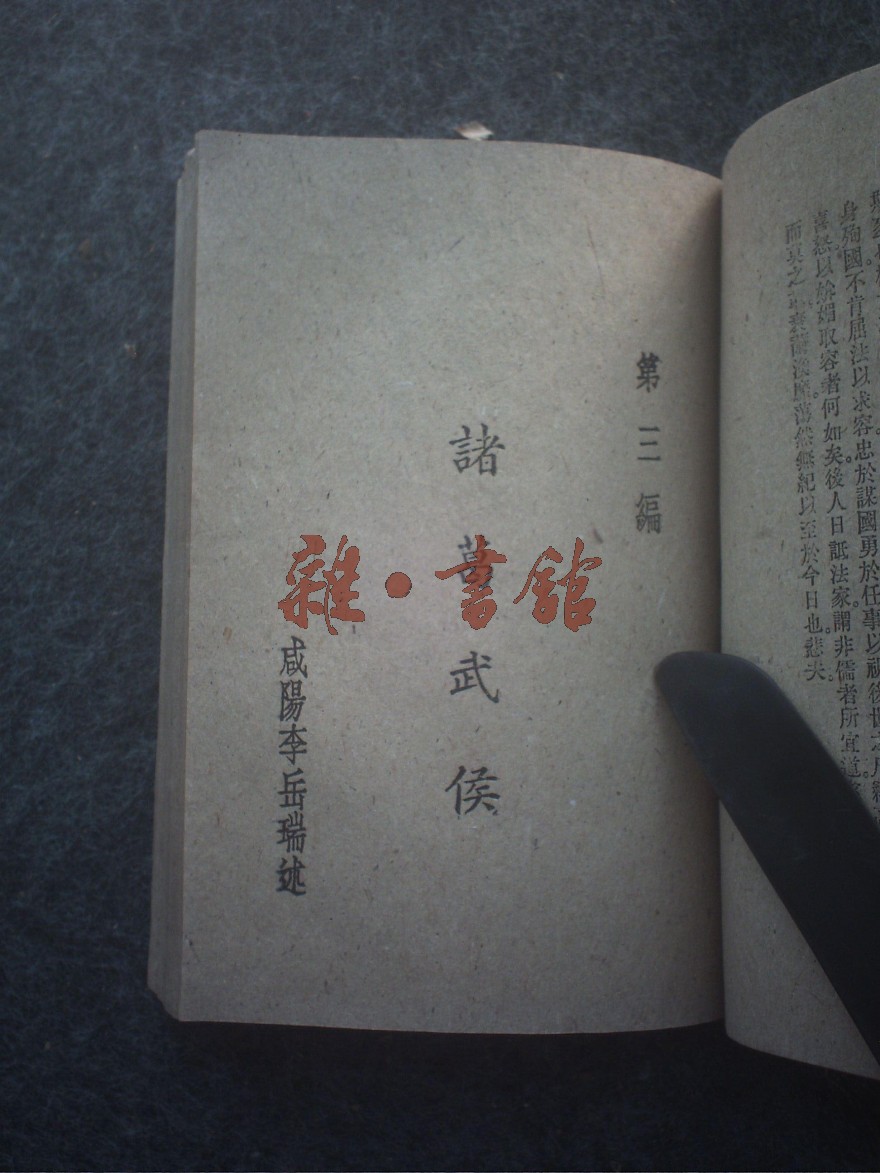 身殉國不肯屈法以求容忠於謀國勇於任事以視後世之
喜怒以媕媚取容者何如矣後人日詆法家謂非儒者所宜道
蕩然無紀以至於今日也悲夫
第三編
諸葛武侯
咸陽李岳瑞述
雜·書館